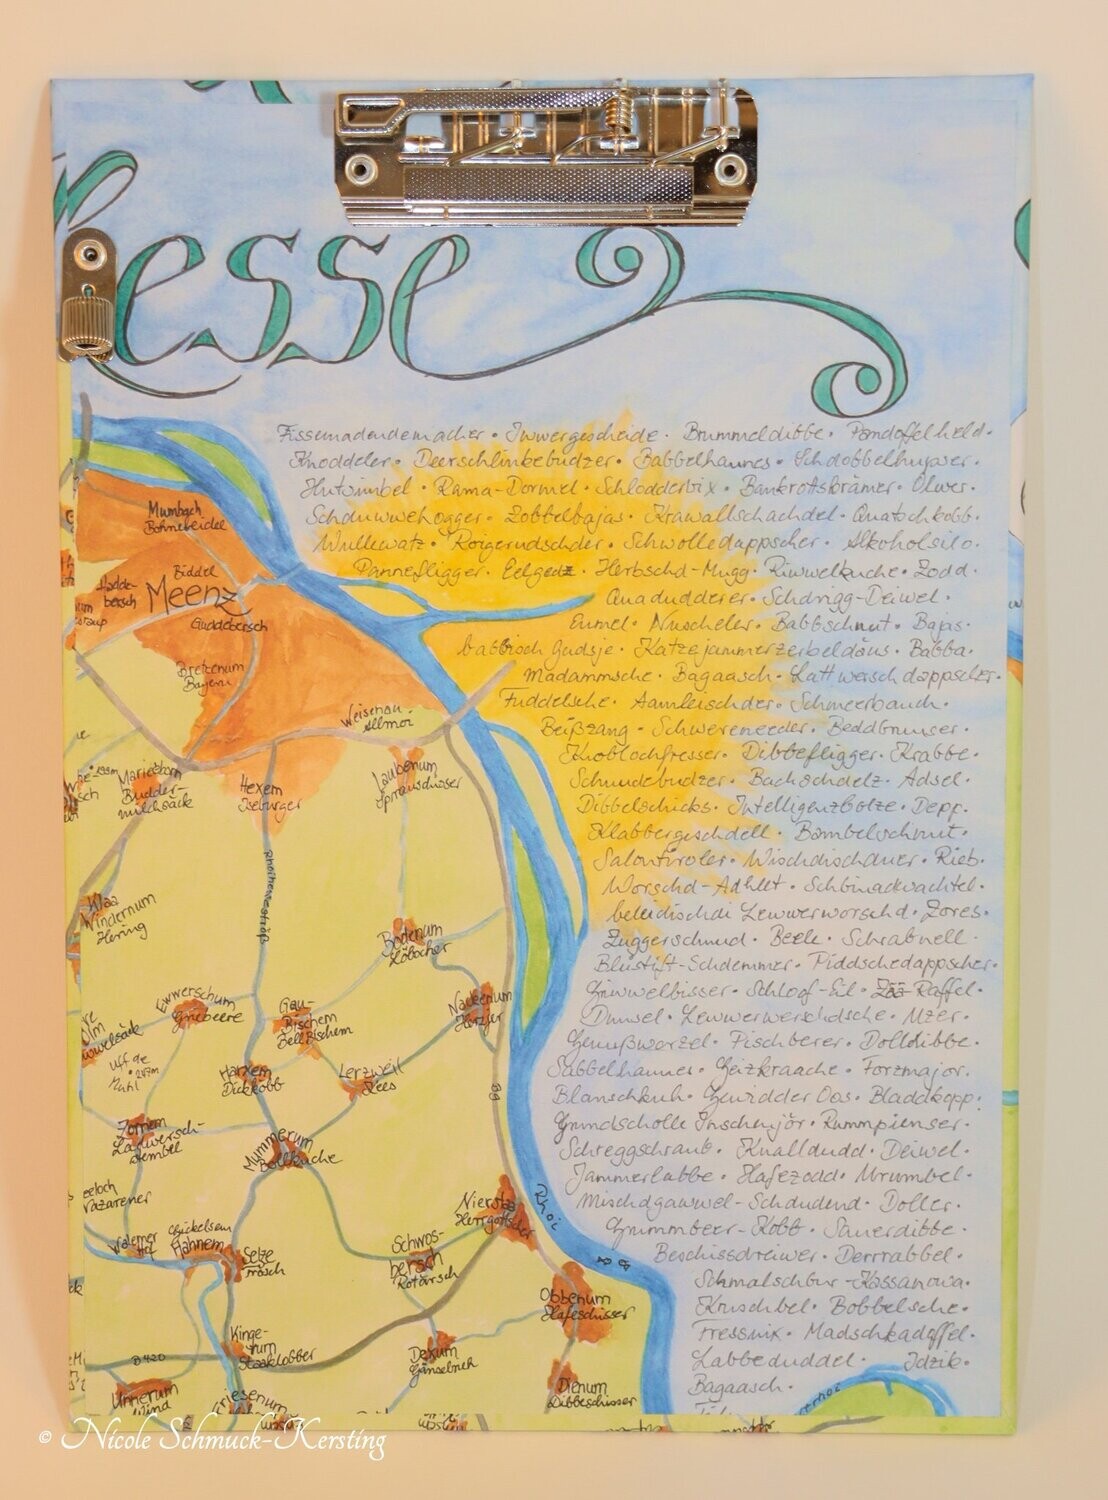 esse
Fissemadendemacher • Iwwergescheide • Brummeldibbe • Pandoffelheld •
Knoddeler • Deerschlinkebudzer • Babbelhannes • Schdobbelhupser •
Hutsimbel • Rama-Dormel • Schlodderbix • Bankrottskrämer • Olwer •
Schduwwehogger • Zobbelbajas • Krawallschachdel • Quatschkobb •
Wullewatz • Roigerudschder • Schwolledappscher • Alkoholsilo •
Pannefligger • Eelgedz • Herbschd-Mugg • Riwwelkuche • Zodd •
Quadudderer • Schdrigg-Deiwel •
Eumel • Nuscheler • Babbschnut • Bajas •
babbisch Gudsje • Katzejammerzerbeldäus • Babba •
Madammsche • Bagaasch • Lattwerschdappscher •
Fuddelsche • Aamleischder • Schmeerbauch •
Beißzang • Schwereneeder • Beddbrunser •
Knoblochfresser • Dibbefligger • Krabbe •
Schnudebudzer • Bachschdelz • Adsel •
Dibbelschicks • Intelligenzbolze • Depp •
Klabbergeschdell • Bambelschnut •
Salontiroler • Wischdischdauer • Rieb •
Worschd-Adhlet • Schbinadwachtel •
beleidischdi Lewwerworschd • Zores •
Zuggerschnud • Beele • Schrabnell •
Bleistift-Schdemmer • Piddschedappscher •
Griwwelbisser • Schloof-Eil • Raffel •
Dunsel • Lewwerwerschdsche • Uzer •
Genußworzel • Pischberer • Dolldibbe •
Sabbelhannes • Geizkraache • Forzmajor •
Blanschkuh • Gewidder Oos • Bladdkopp •
Grundscholle Inschenjör • Rummpienser •
Schreggschraub • Knalldudd • Deiwel •
Jammerlabbe • Hafezodd • Urumbel •
Mischdgawwel-Schdudend • Doller •
Grummbeer-Kobb • Sauerdibbe •
Beschissdreiwer • Derrrabbel •
Schmalschbur-Kassanowa •
Knuschbel • Bobbelsche •
Fressnix • Madschkadoffel •
Labbeduddel • Idzik •
Bagaasch •
Mumbach
Bohnebeidel
Biddel
Meenz
Guddebersch
Hadde-
bersch
Bretzenum
Bayern
Weisenau
Allmor
Marieborn
Budder-
milchsäck
Hexem
Iseburger
Laubenum
Rhoihessestrooß
Klaa
Windernum
Hering
Bodenum
Ewwerschum
Griebeere
Gau-
Bischem
Nackenum
Uff de
Muhl
Harxem
Dickkobb
Lerzweil
Kees
Zornem
Mummerum
Bollkuche
Nierstaa
Herrgottscher
Rhoi
89
Hahnem
Selze
Frösch
Schwos-
bersch
Rotärsch
Obbenum
Hafeschisser
Kinge-
rum
Staaklobber
B420
Dexum
Gänselbuch
Dienum
Dibbeschisser
Unnerum
Wind
© Nicole Schmuck-Kersting